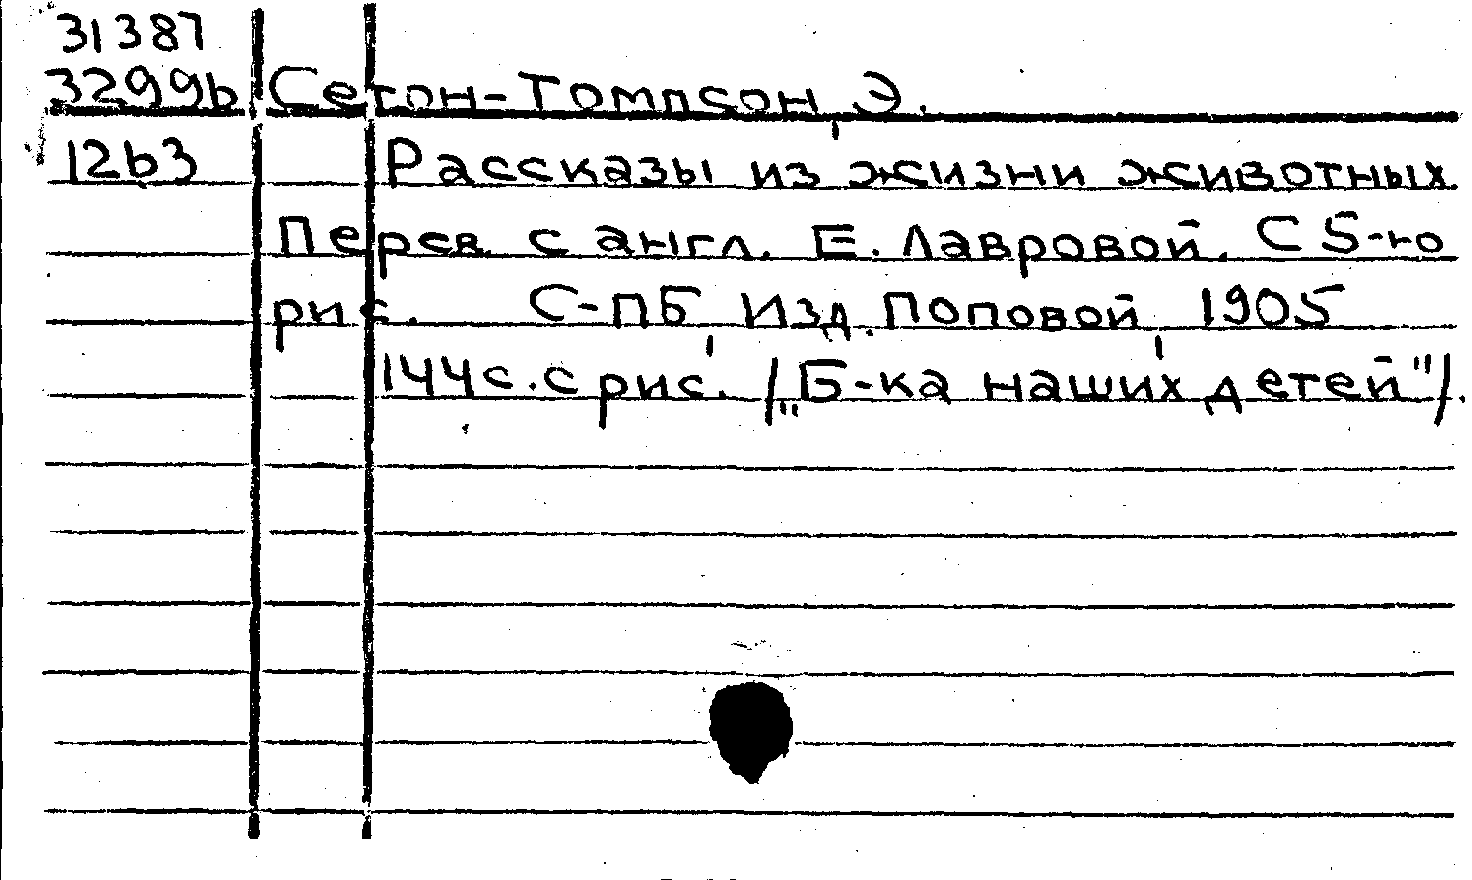 31387
3299b Сетон-Томпсон, Э.
12b3 Рассказы из жизни животных.
Перев. с англ. Е. Лавровой. С 5-ю
рис. С-ПБ, Изд. Поповой, 1905
144 с. с рис. /„Б-ка наших детей"/.